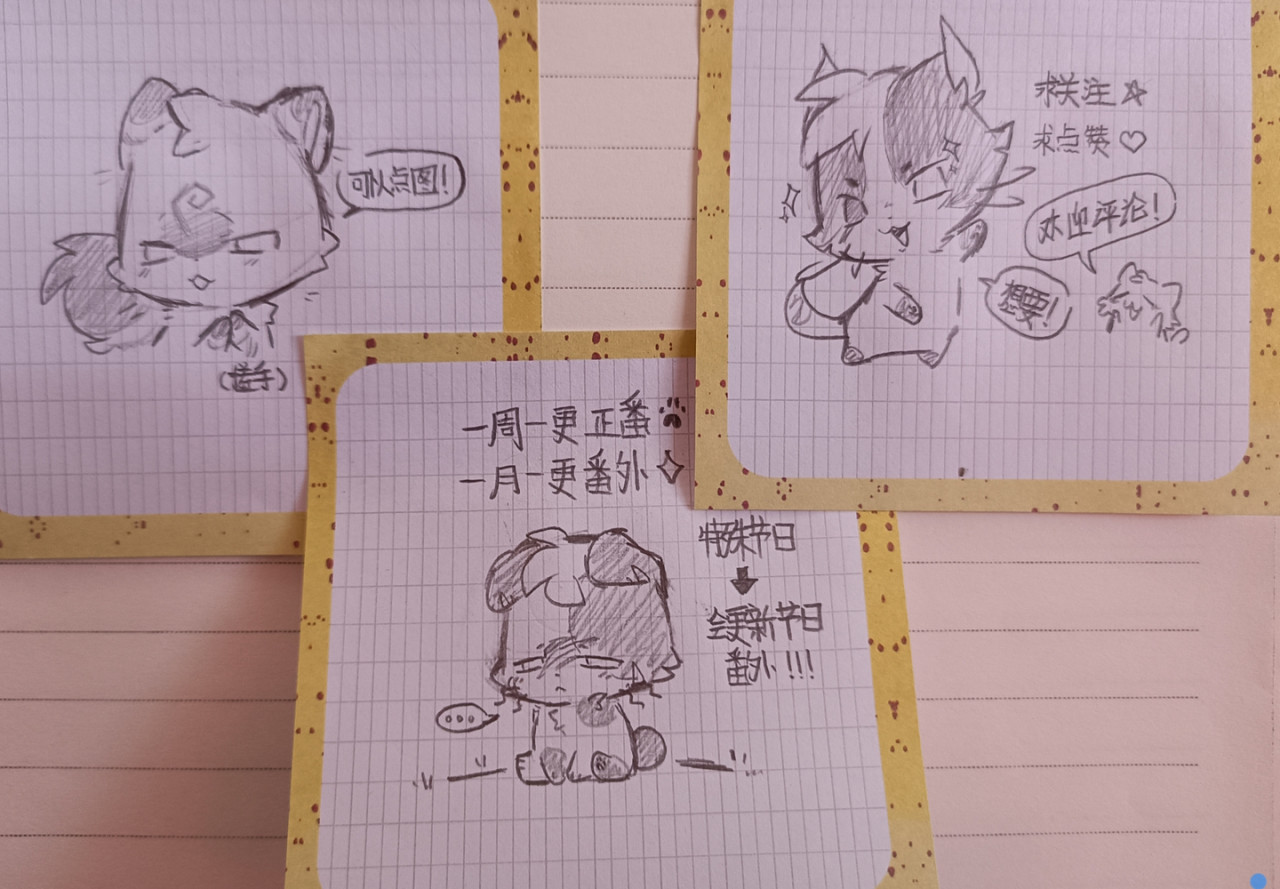 可以点图!
(搓手)
求关注☆
求点赞♡
欢迎评论!
想要!
一周一更 正番
一月一更番外
特殊节日
↓
会更新节日
番外!!!
...